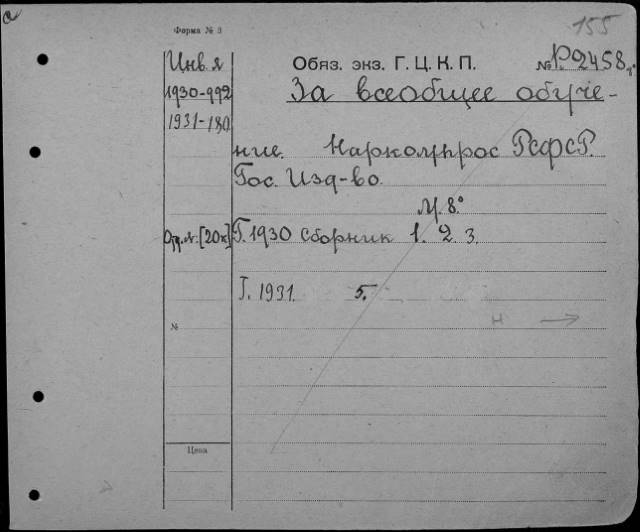 а
155
Форма № 3
Инв. я
Обяз. экз. Г. Ц. К. П. № Р. 2458
1930-992
За всеобщее обуче-
1931-180
ние. Наркомпрос РСФСР.
Гос. Изд-во.
М. 8°
[20к] Г. 1930 Сборник 1. 2. 3.
Г. 1931. 5.
н →
№
Цена